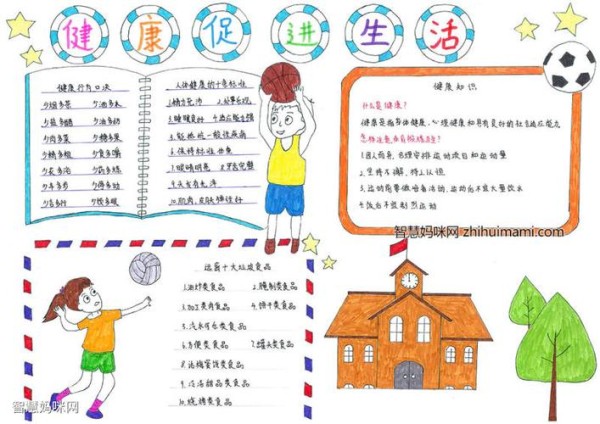 健康促进生活
健康行为口诀
少烟多茶 少油多水
少盐多醋 少油多动
少肉多菜 少糖多果
少药多练
少车多步
人体健康的十条标准
1.精力充沛 2.处事乐观
3.睡眠良好 4.适应能力强
5.能抵抗一般性疾病
6.保持标准体重
7.眼睛明亮 8.牙齿完整
9.头发有光泽
10.肌肉、皮肤弹性好
健康知识
什么是健康?
健康是指身体健康、心理健康和具有良好的社会适应能力
1.因人而异,合理安排运动项目和运动量
2.坚持不懈,持之以恒
3.运动前要做准备活动,运动后不宜大量饮水
4.饭后不做剧烈运动
智慧妈咪网 zhihuimami.com
远离十大垃圾食品
1.油炸类食品 2.腌制类食品
3.加工类肉食品 4.饼干类食品
5.汽水可乐类食品
6.方便类食品 7.罐头类食品
8.话梅蜜饯类食品
9.冷冻甜品类食品
10.烧烤类食品
智慧妈咪网